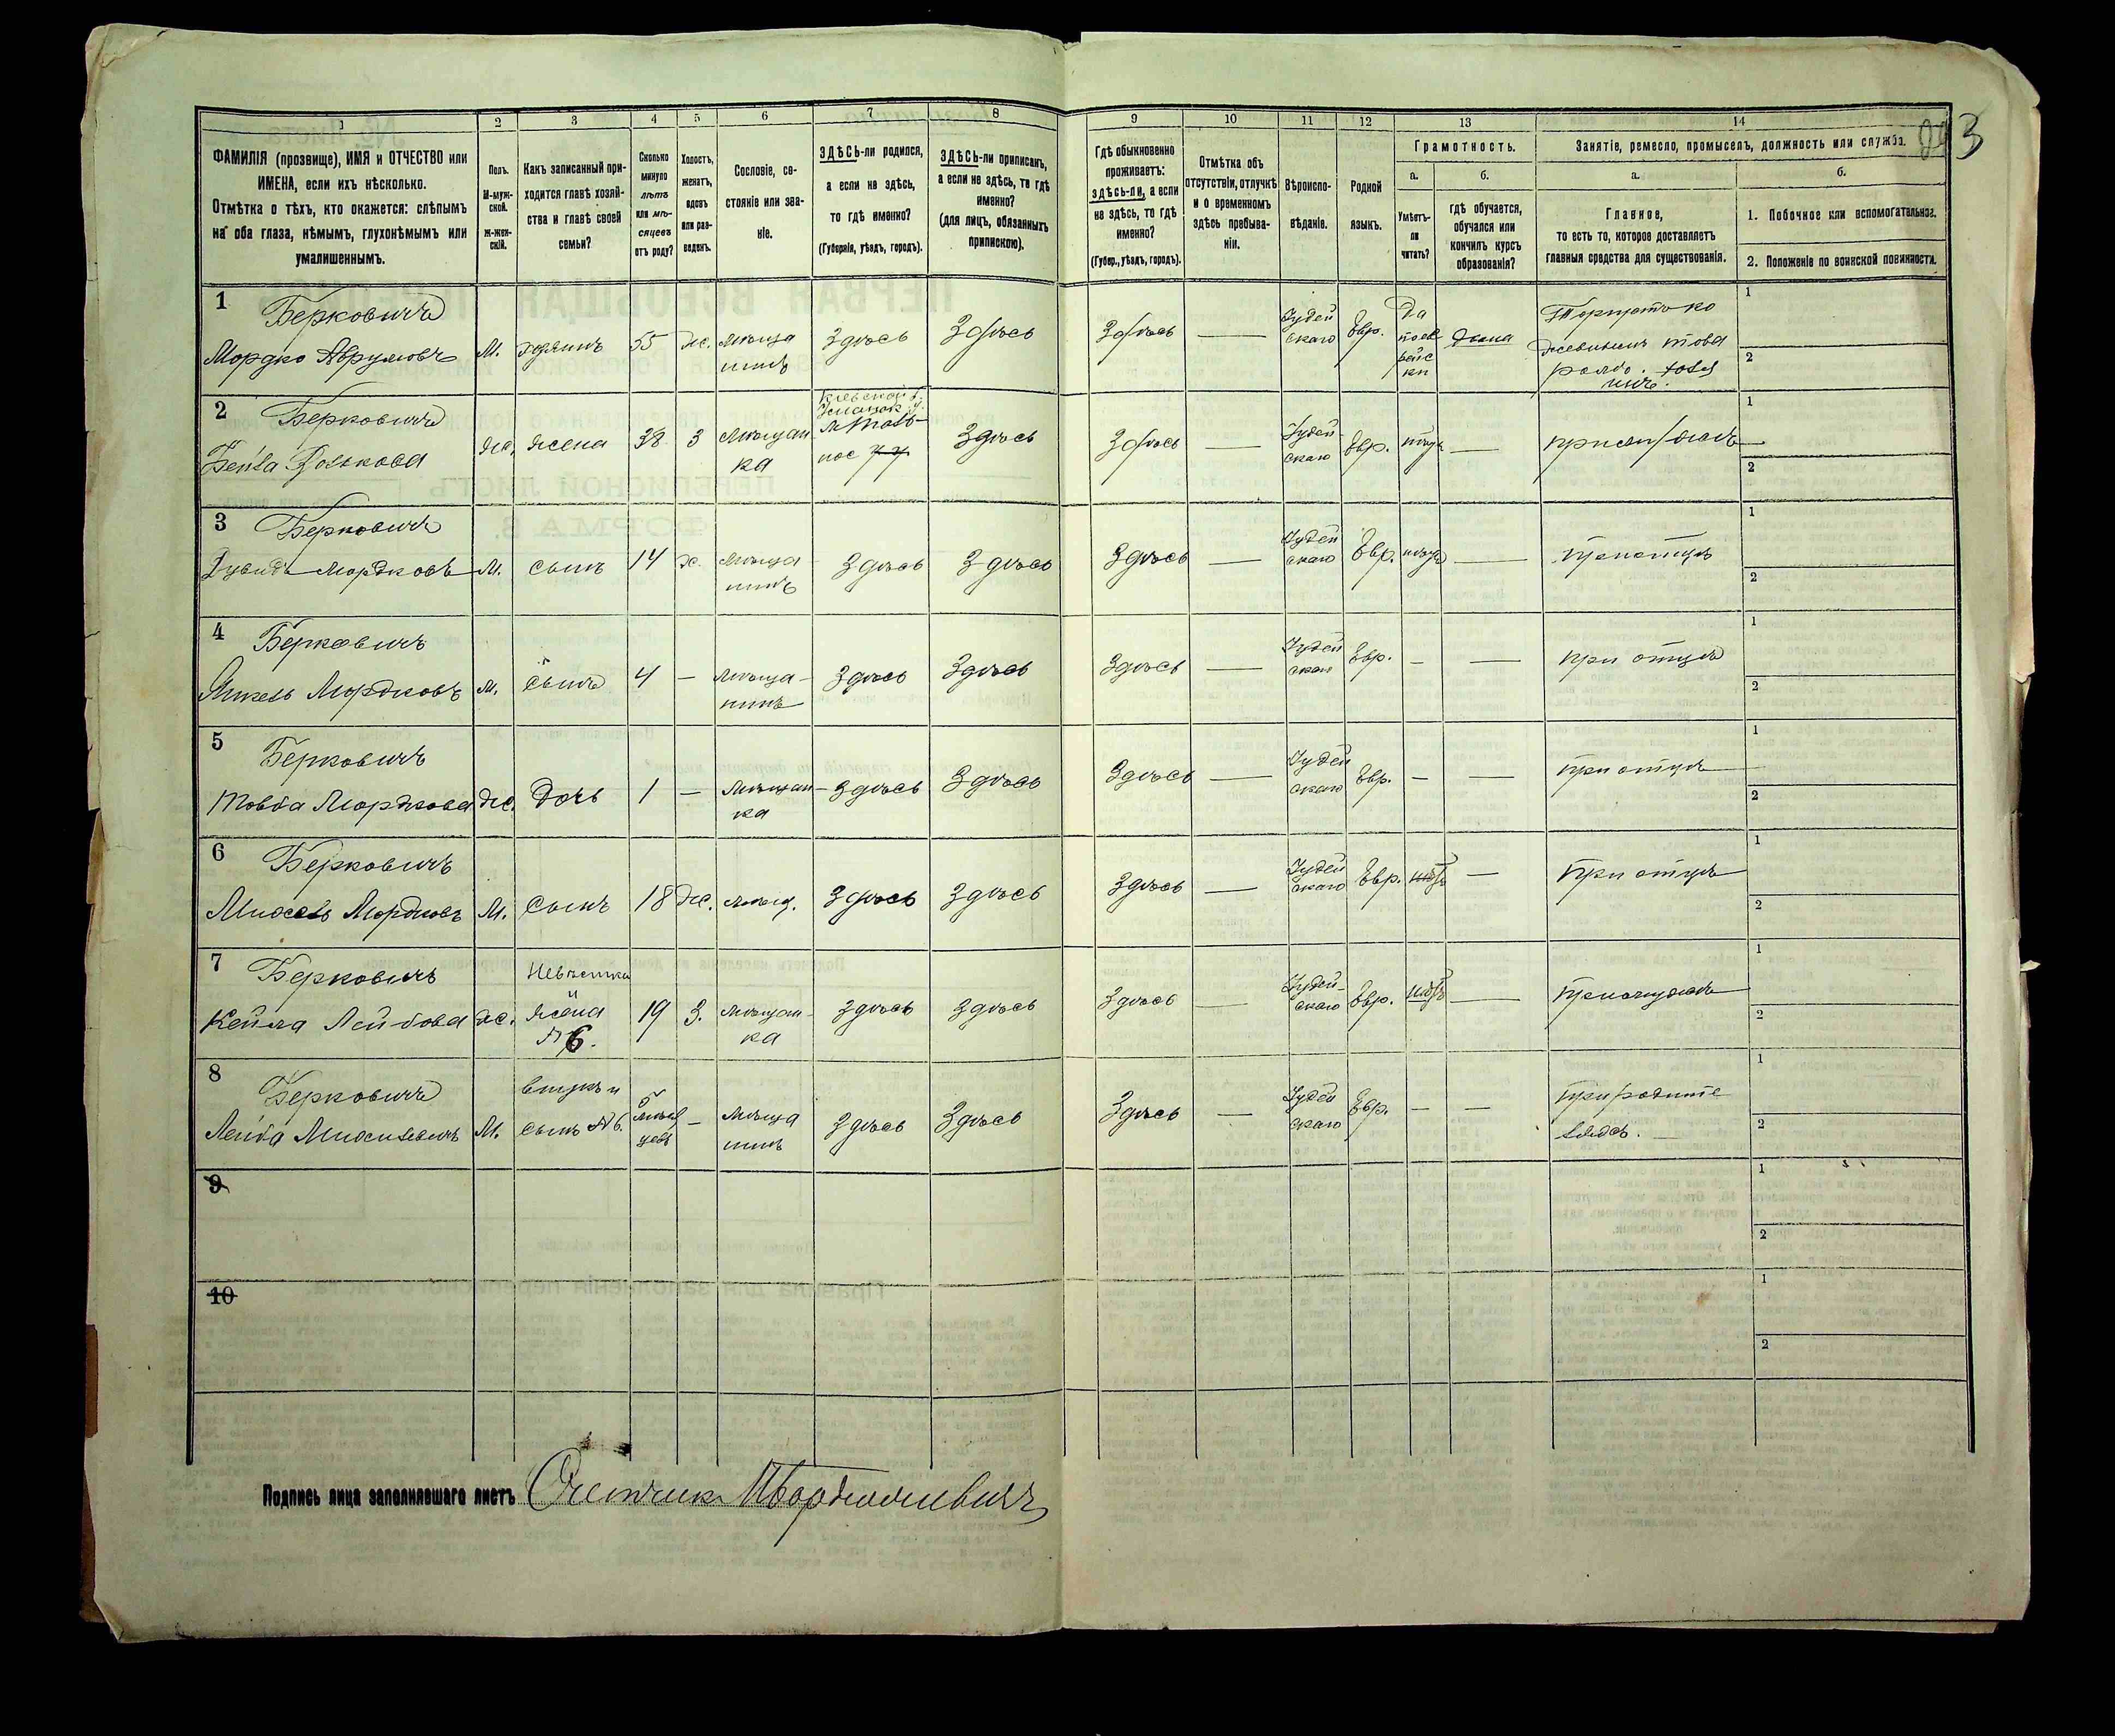 1 2 3 4 5 6 7 8 9 10 11 12 13 14
ФАМИЛІЯ (прозвище), ИМЯ и ОТЧЕСТВО или
ИМЕНА, если ихъ нѣсколько.
Отмѣтка о тѣхъ, кто окажется: слѣпымъ
на оба глаза, нѣмымъ, глухонѣмымъ или
умалишеннымъ.
Полъ.
М-муж-
ской.
Ж-жен-
скій.
Какъ записанный при-
ходится главѣ хозяй-
ства и главѣ своей
семьи?
Сколько
минуло
лѣтъ
или мѣ-
сяцевъ
отъ роду?
Холостъ,
женатъ,
вдовъ
или раз-
веденъ.
Сословіе, со-
стояніе или зва-
ніе.
ЗДѢСЬ-ли родился,
а если не здѣсь,
то гдѣ именно?
(Губернія, уѣздъ, городъ).
ЗДѢСЬ-ли приписанъ,
а если не здѣсь, то гдѣ
именно?
(для лицъ, обязанныхъ
припискою).
Гдѣ обыкновенно
проживаетъ:
здѣсь-ли, а если
не здѣсь, то гдѣ
именно?
(Губер., уѣздъ, городъ).
Отмѣтка объ
отсутствіи, отлучкѣ
и о временномъ
здѣсь пребыва-
ніи.
Вѣроиспо-
вѣданіе.
Родной
языкъ.
Грамотность.
а.
Умѣетъ-
ли
читать?
б.
гдѣ обучается,
обучался или
кончилъ курсъ
образованія?
Занятіе, ремесло, промыселъ, должность или служба.
а.
Главное,
то есть то, которое доставляетъ
главныя средства для существованія.
б.
1. Побочное или вспомогательное.
2. Положеніе по воинской повинности.
3
1 Берковичъ
Мордко Аврумовъ М. хозяинъ 55 ж. мѣща
нинъ Здѣсь Здѣсь Здѣсь — Іудей
скаго Евр. Да
по ев
рейс
ки дома Торгуетъ ко
жевеннымъ това
ромъ.
1
2
2 Берковичъ
Бейла Ж. жена 38 З мѣщан
ка Кіевской г.
Здѣсь Здѣсь — Іудей
скаго Евр. нѣтъ — при мужѣ
1
2
3 Берковичъ
Дувидъ Мордковъ М. сынъ 14 х. мѣща
нинъ Здѣсь Здѣсь Здѣсь — Іудей
скаго Евр. нѣтъ — при отцѣ
1
2
4 Берковичъ
Янкель Мордковъ М. сынъ 4 — мѣща-
нинъ Здѣсь Здѣсь Здѣсь — Іудей
скаго Евр. — — при отцѣ
1
2
5 Берковичъ
Товба Мордкова Ж. дочь 1 — мѣщан-
ка Здѣсь Здѣсь Здѣсь — Іудей
скаго Евр. — — при отцѣ
1
2
6 Берковичъ
Михель Мордковъ М. сынъ 18 ж. мѣщ. Здѣсь Здѣсь Здѣсь — Іудей
скаго Евр. нѣтъ — при отцѣ
1
2
7 Берковичъ
Кейла Лейбова ж. невѣстка
жена
№ 6. 19 З. мѣщан-
ка Здѣсь Здѣсь Здѣсь — Іудей-
скаго Евр. нѣтъ — при мужѣ
1
2
8 Берковичъ
Лейба Михелевичъ М. внукъ и
сынъ № 6. мѣся
цевъ — мѣща
нинъ Здѣсь Здѣсь Здѣсь — Іудей
скаго Евр. — — при родите
ляхъ.
1
2
9
1
2
10
1
2
Подпись лица заполнявшаго листъ Счетчикъ